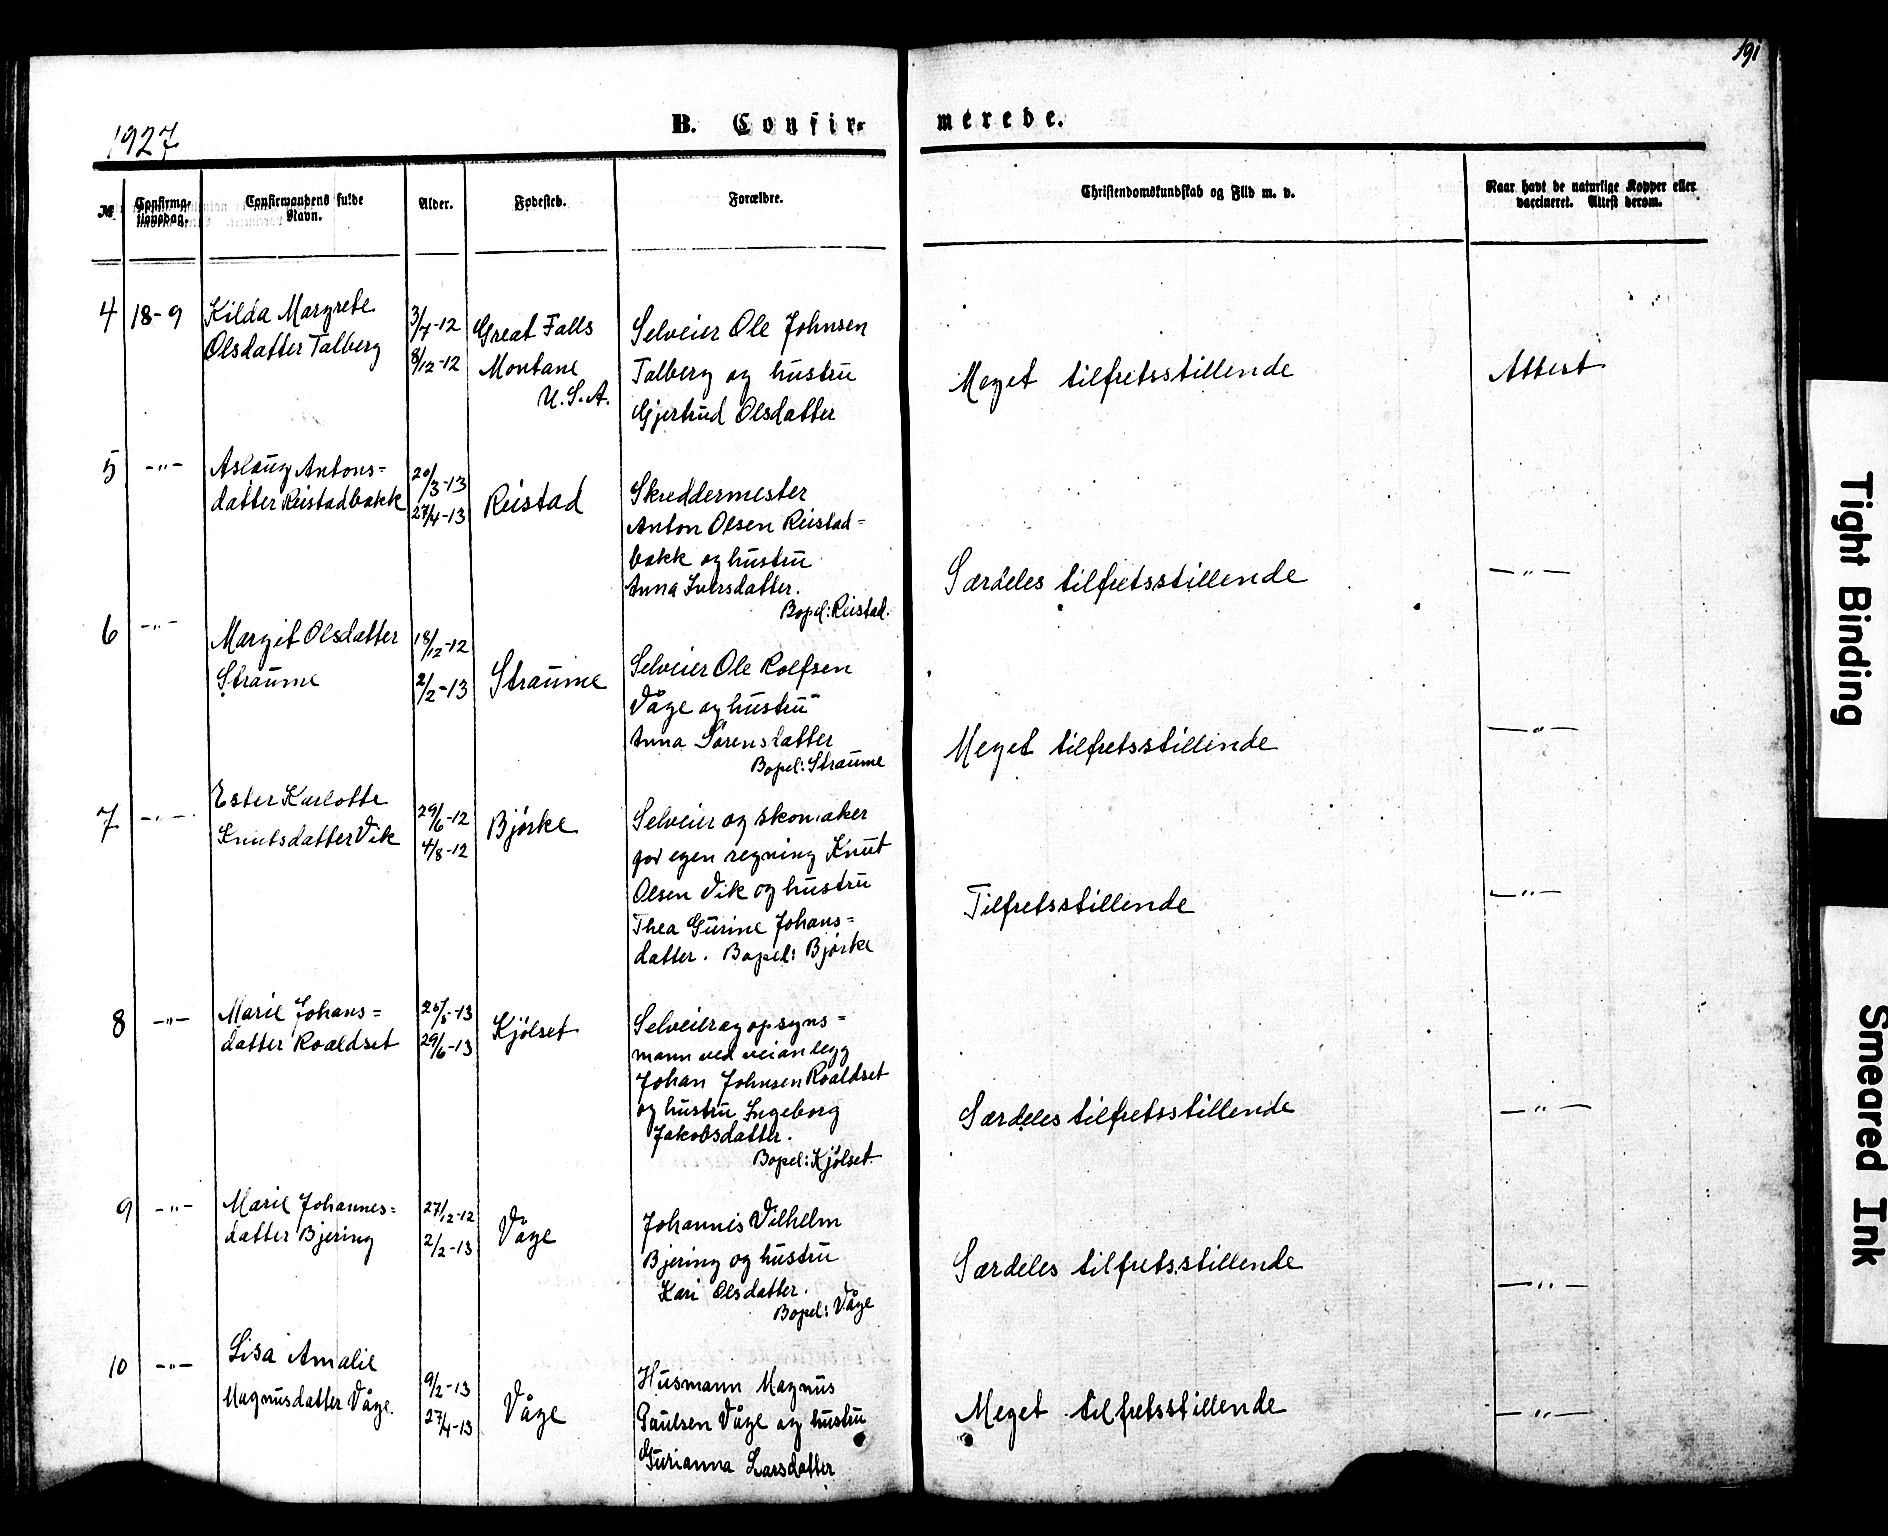 191
1927
B. Confir- merede.
№
Confirma-
tionsdag.
Confirmandens fulde
Navn.
Alder.
Fødested.
Forældre.
Christendomskundskab og Flid m. v.
Naar havt de naturlige Kopper eller
vaccineret. Attest derom.
4 18-9
Kilda Margrete
Olsdatter Talberg
3/7-12
8/12-12
Great Falls
Montane
U.S.A.
Selveier Ole Johnsen
Talberg og hustru
Gjertrud Olsdatter
Meget tilfretsstillende
Attest
5 -"-
Aslaug Antons=
datter Reistadbakk
20/3-13
27/4-13
Reistad
Skreddermester
Anton Olsen Reistad=
bakk og hustru
Anna Iversdatter.
Bopel: Reistad.
Særdeles tilfretsstillende
-"-
6 -"-
Margit Olsdatter
Straume
18/12-12
2/2-13
Straume
Selveier Ole Rolfsen
Våge og hustru
Anna Sørensdatter
Bopel: Straume
Meget tilfretsstillende
-"-
7 -"-
Ester Karlotte
Knutsdatter Vik
29/6-12
4/8-12
Bjørke
Selveier og skomaker
for egen regning Knut
Olsen Vik og hustru
Thea Gurine Johans=
datter. Bopel: Bjørke
Tilfretsstillende
-"-
8 -"-
Marie Johans=
datter Roaldset
29/6-13
Kjølset
Selveier og opsyns=
mann ved veianlegg
Johan Johnsen Roaldset
og hustru Ingeborg
Jakobsdatter.
Bopel: Kjølset.
Særdeles tilfretsstillende
-"-
9 -"-
Marie Johannes=
datter Bjering
27/12-12
2/2-13
Våge
Johannes Vilhelm
Bjering og hustru
Kari Olsdatter.
Bopel: Våge
Særdeles tilfretsstillende
-"-
10 -"-
Lisa Amalie
Magnusdatter Våge.
9/2-13
27/4-13
Våge
Husmann Magnus
Paulsen Våge og hustru
Gurianna Larsdatter
Meget tilfretsstillende
-"-
Tight Binding
Smeared Ink